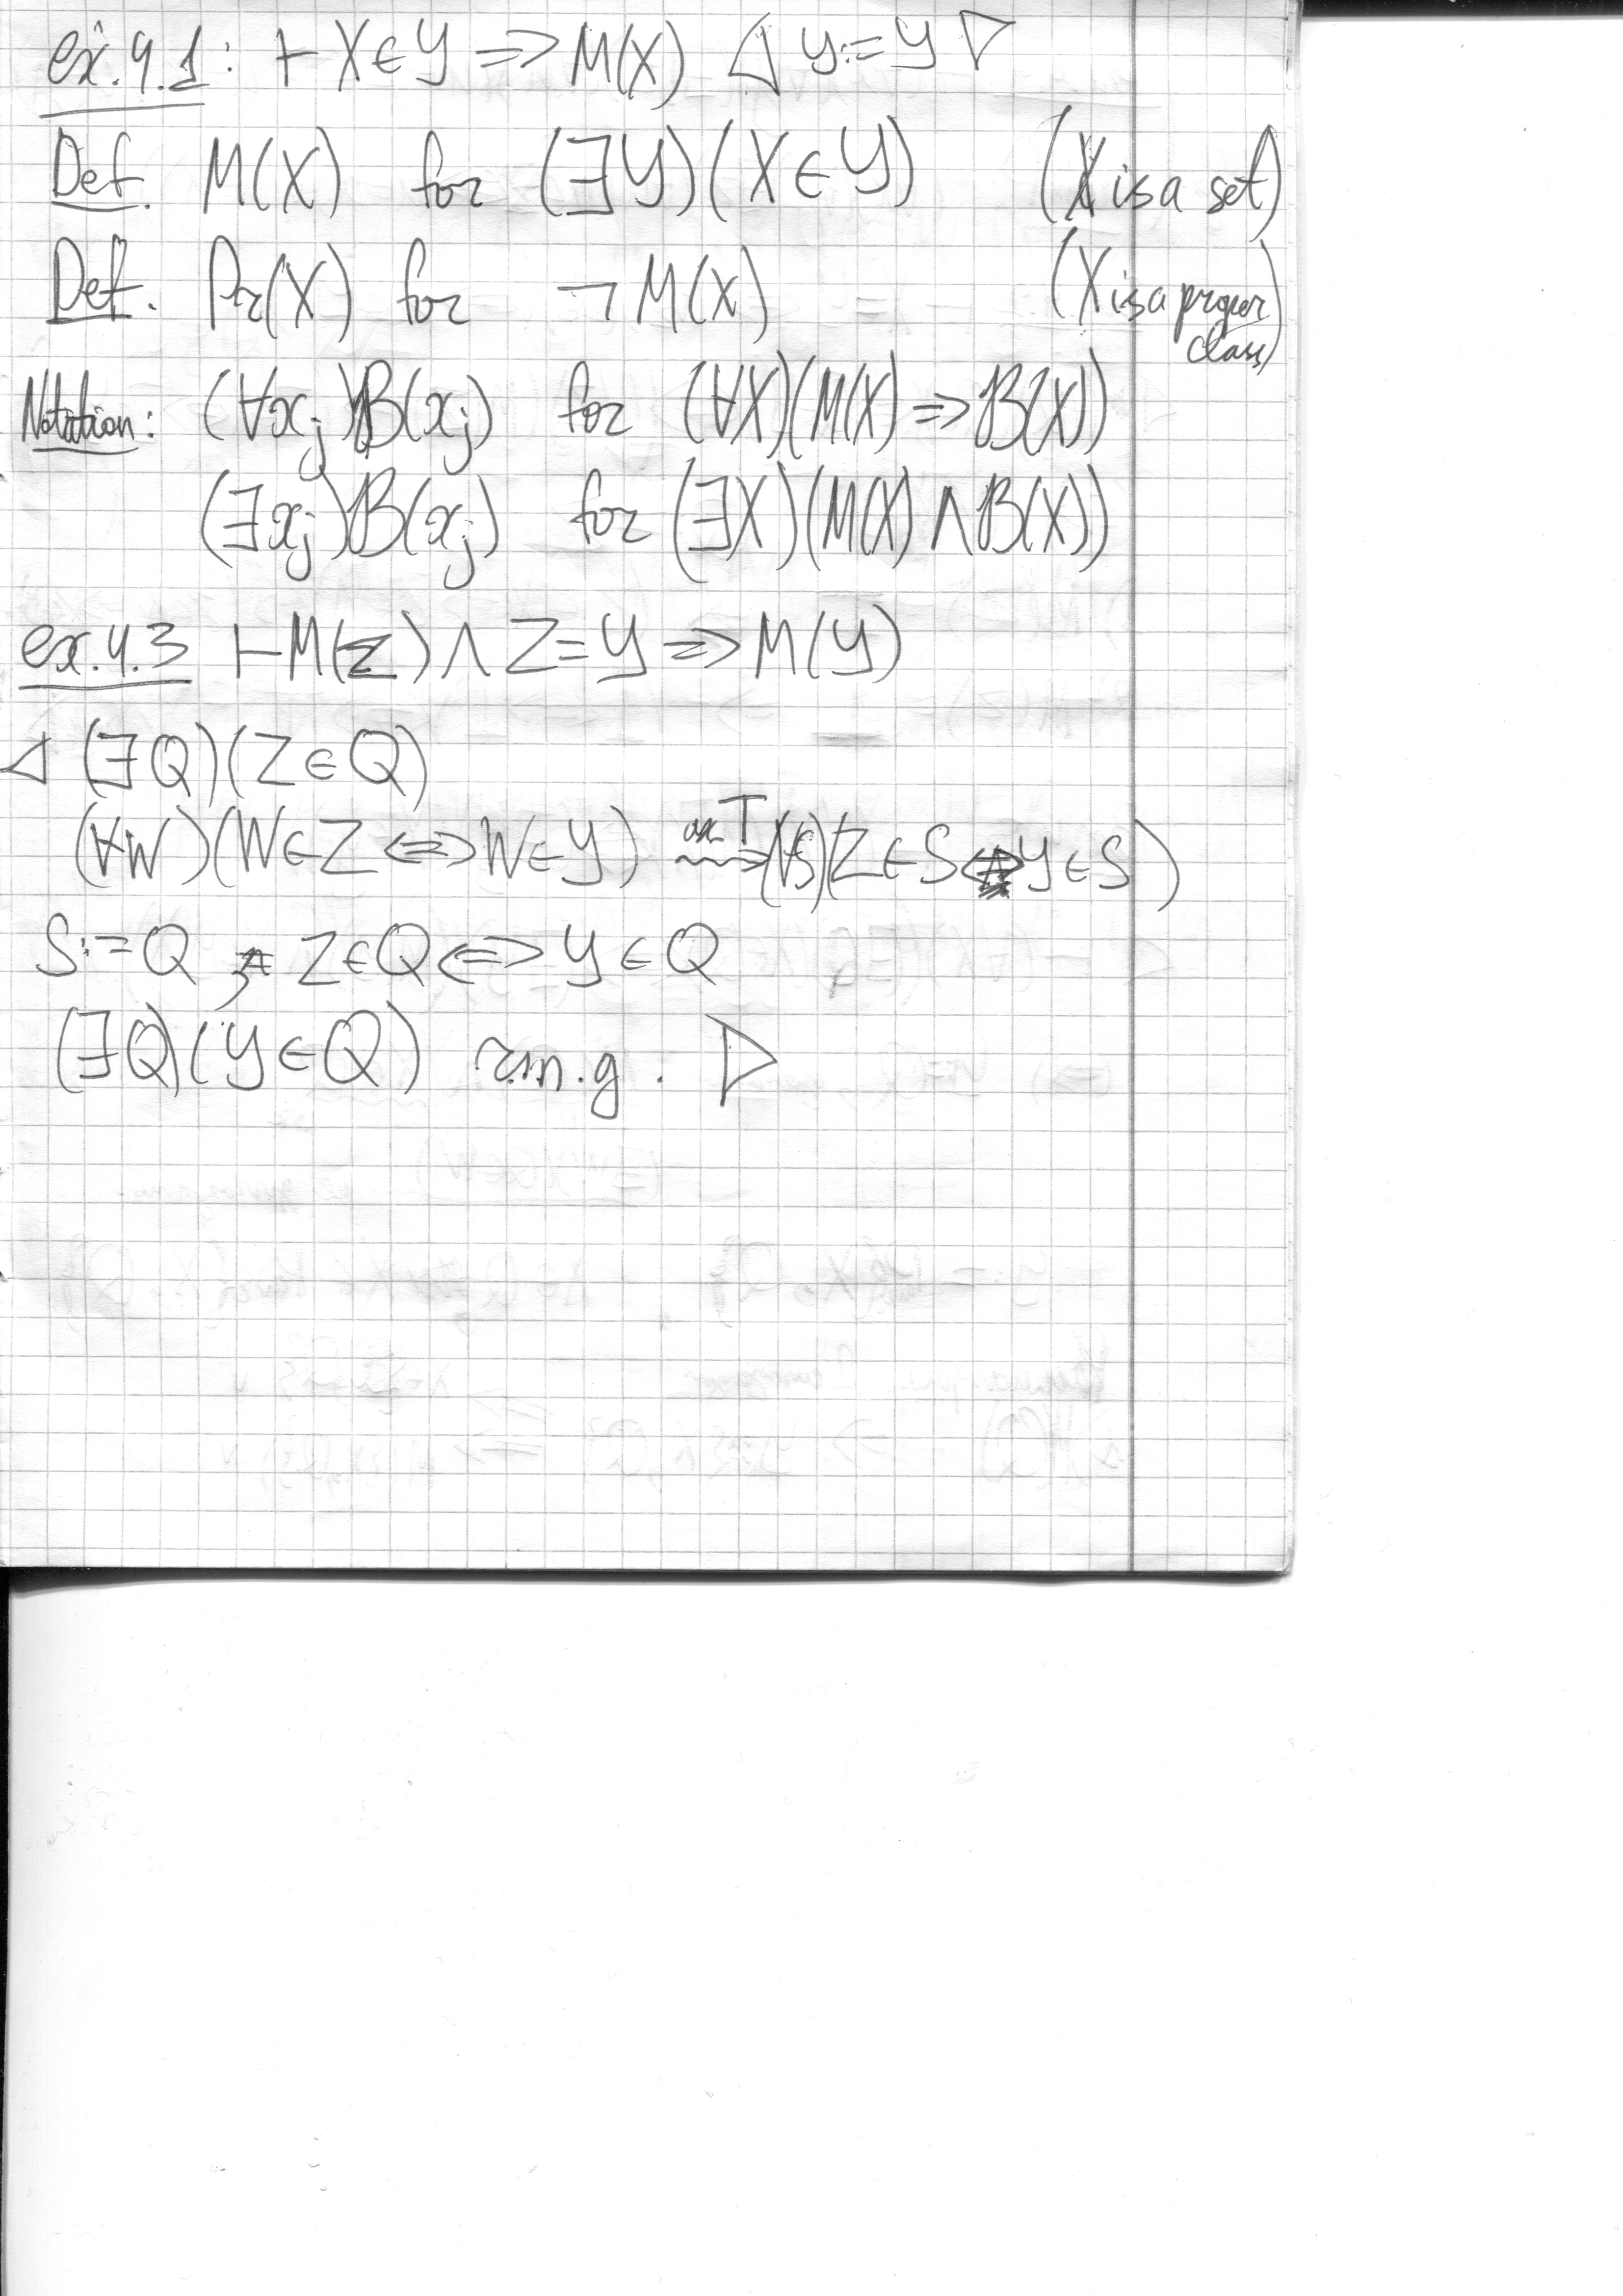 ex.4.1: ⊢ X∈Y ⇒ M(X) ◁ Y:=Y ▷
Def. M(X) for (∃Y)(X∈Y) (X is a set)
Def. Pr(X) for ¬M(X) (X is a proper class)
Notation: (∀xj)B(xj) for (∀X)(M(X)⇒B(X))
(∃xj)B(xj) for (∃X)(M(X)∧B(X))
ex.4.3 ⊢M(Z)∧Z=Y⇒M(Y)
◁ (∃Q)(Z∈Q)
(∀W)(W∈Z⇔W∈Y) ax T ⇝ (∀S)(Z∈S⇔Y∈S)
S:=Q, Z∈Q⇔Y∈Q
(∃Q)(Y∈Q) ▷